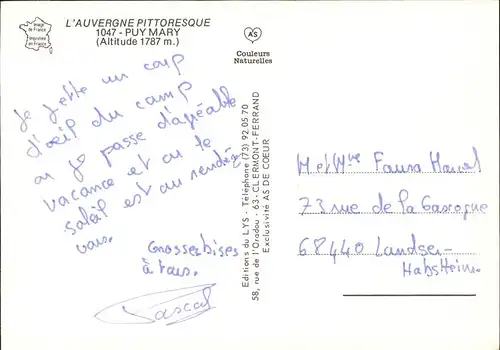 L'AUVERGNE PITTORESQUE
1047 - PUY MARY
(Altitude 1787 m.)
image
de France
imprimée
en France
AS
Couleurs
Naturelles
Je jette un coup
d'œil du camp
ou je passe d'agréable
vacance et ou le
soleil est au rendez
vous.
Grosses bises
à tous.
Pascal
Editions du LYS - Téléphone (73) 92.05.70
58, rue de l'Oradou - 63-CLERMONT-FERRAND
Exclusivité AS DE COEUR
M et Mme Faura Marcel
73 rue de la Gascogne
68440 Landser-
Habsheim.